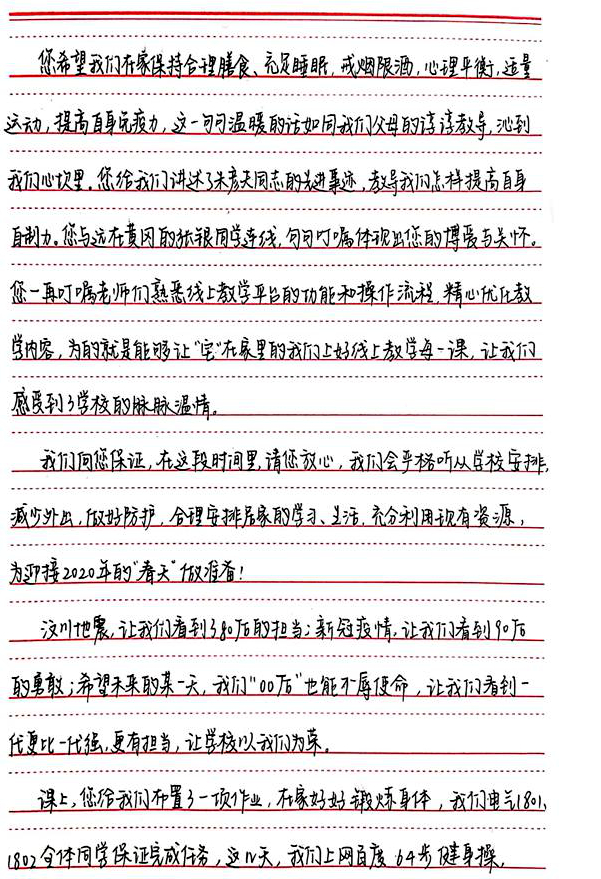 您希望我们在家保持合理膳食、充足睡眠,戒烟限酒,心理平衡,适量
运动,提高自身免疫力,这一句句温暖的话如同我们父母的谆谆教导,沁到
我们心坎里。您给我们讲述了朱彦夫同志的先进事迹,教导我们怎样提高自身
自制力。您与远在黄冈的张银同学连线,句句叮嘱体现出您的博爱与关怀。
您一再叮嘱老师们熟悉线上教学平台的功能和操作流程,精心优化教
学内容,为的就是能够让“宅”在家里的我们上好线上教学每一课,让我们
感受到了学校的脉脉温情。
我们向您保证,在这段时间里,请您放心,我们会严格听从学校安排,
减少外出,做好防护,合理安排居家的学习、生活,充分利用现有资源,
为迎接2020年的“春天”做准备!
汶川地震,让我们看到了80后的担当;新冠疫情,让我们看到90后
的勇敢;希望未来的某一天,我们“00后”也能不辱使命,让我们看到一
代更比一代强,更有担当,让学校以我们为荣。
课上,您给我们布置了一项作业,在家好好锻炼身体,我们电气1801、
1802全体同学保证完成任务,这几天,我们上网百度64步健身操,